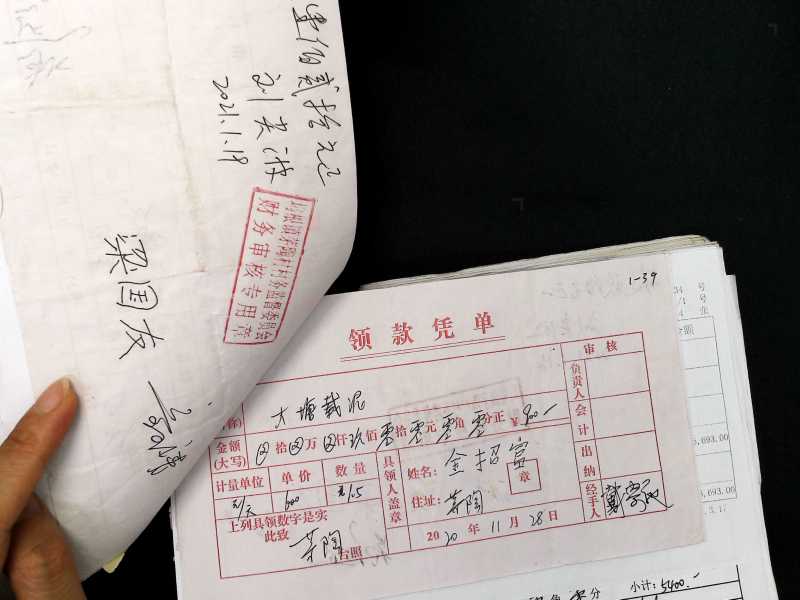 壹佰贰拾元正
2021.1.19
财务审核专用章
梁国友
1-39
领款凭单
大塘截泥
金额
(大写)
拾 万 仟 玖 佰 零 拾 零 元 零 角 零 分正 ¥ 900
计量单位 单价 数量
元/天 600 1.5
上列具领数字是实
此致
茅陶 台照
具领人盖章
姓名: 金招富
住址: 茅陶
章
2020 年 11 月 28 日
审核
负责人
会计
出纳
经手人
号
号
张
金额
5,693.00
5,693.00
小计: 5400.